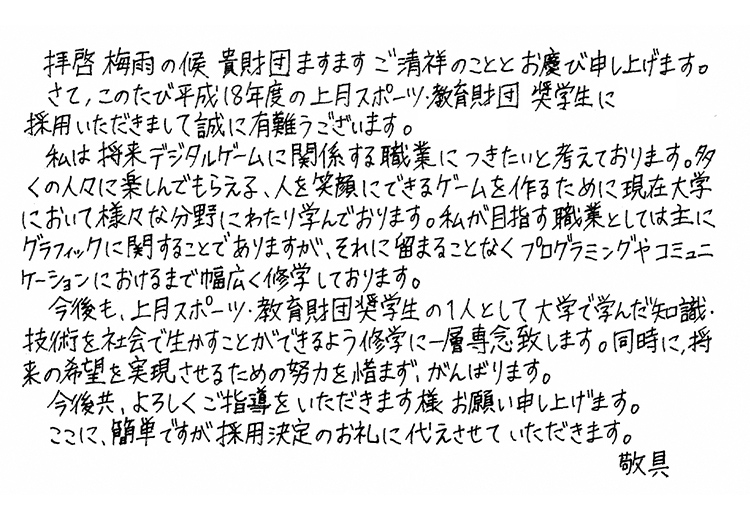 拝啓 梅雨の候 貴財団ますますご清祥のこととお慶び申し上げます。
さて,このたび平成18年度の上月スポーツ・教育財団 奨学生に
採用いただきまして誠に有難うございます。
私は将来デジタルゲームに関係する職業につきたいと考えております。多
くの人々に楽しんでもらえる、人を笑顔にできるゲームを作るために現在大学
において様々な分野にわたり学んでおります。私が目指す職業としては主に
グラフィックに関することでありますが、それに留まることなくプログラミングやコミュニ
ケーションにおけるまで幅広く修学しております。
今後も、上月スポーツ・教育財団奨学生の1人として大学で学んだ知識・
技術を社会で生かすことができるよう修学に一層専念致します。同時に,将
来の希望を実現させるための努力を惜まず、がんばります。
今後共、よろしくご指導をいただきます様お願い申し上げます。
ここに、簡単ですが採用決定のお礼に代えさせていただきます。
敬具